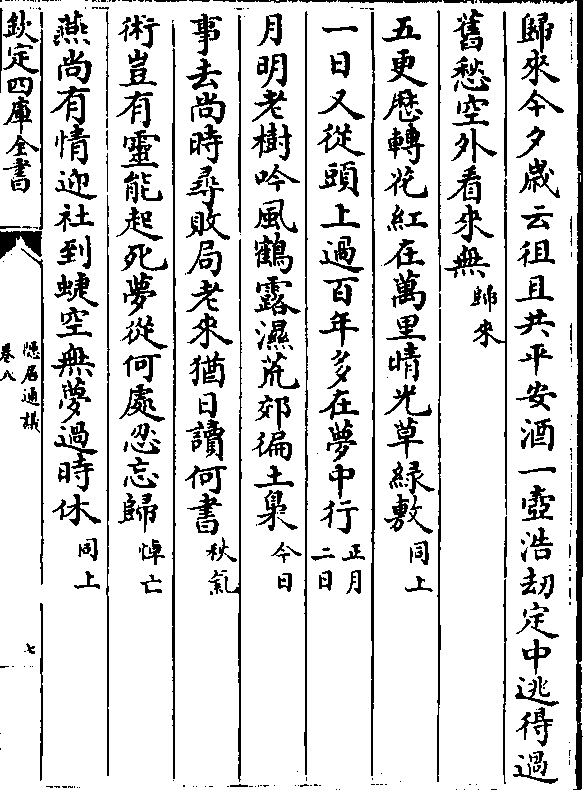 歸來今夕歲云徂且共平安酒一壺浩劫定中逃得過
舊愁空外看來無歸來
五更歷轉花紅在萬里晴光草緑敷同上
一日又從頭上過百年多在夢中行正月二日
月明老樹吟風鶴露濕荒郊徧土梟今日
事去尚時尋敗局老來猶日讀何書秋氣
術豈有靈能起死夢從何處忍忘歸悼亡
燕尚有情迎社到蜨空無夢過時休同上
欽定四庫全書
隠居通議
卷八
七